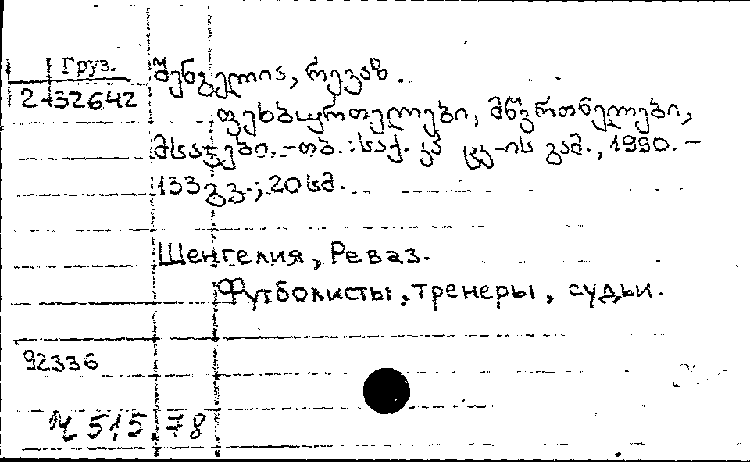 Груз.
შენგელია, რევაზ.
2-32642
ფეხბურთელები, მწვრთნელები,
მსაჯები.-თბ.:საქ. კპ ცკ-ის გამ., 1990.-
133 გვ.; 20 სმ.
Шенгелия, Реваз.
Футболисты, тренеры, судьи.
92336
Ч 515 78